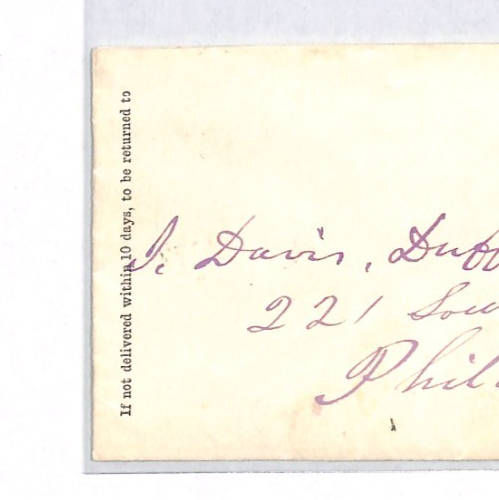 If not delivered within 10 days, to be returned to
J. Davis, Duff
221 Sou
Phil